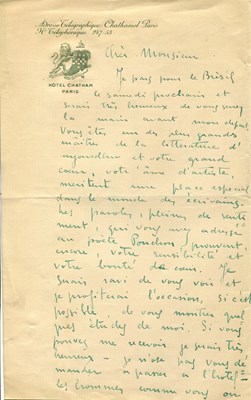 Adresse Télégraphique: Chathamotel Paris
N° Téléphonique 247-53
HÔTEL CHATHAM
PARIS
Cher Monsieur
Je pars pour le Brésil
le samedi prochain et
serais très heureux de vous
la main avant mon départ
Vous êtes un des plus grands
maîtres de la littérature d'
aujourd'hui et votre grand
cœur, votre âme d'artiste,
méritent une place especial
dans le monde des
Les paroles, pleines de senti
ment, qui vous avez adressé
au poète Ponchon, prouvent,
encore, votre sensibilité et
votre bonté de cœur. Je
serais ravi de vous voir et
je profiterai l'occasion, si c'est
possible, de vous montrer quel
ques études de moi. Si vous
pouvez me recevoir je serais très
heureux — je n'ose pas vous de
mander à passer a l'hotel —
les hommes comme vous on